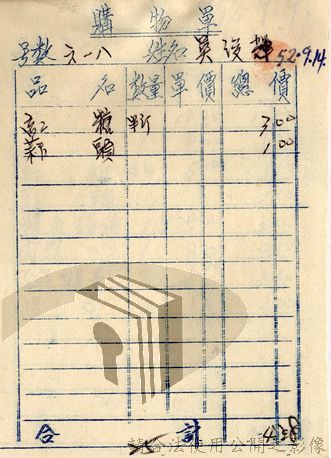 購物單
号數 六一八 姓名 吳 52.9.14.
品名 數量 單價 總價
糖 半斤 3 00
蒜頭 1 00
合計 4
請合法使用公開之影像